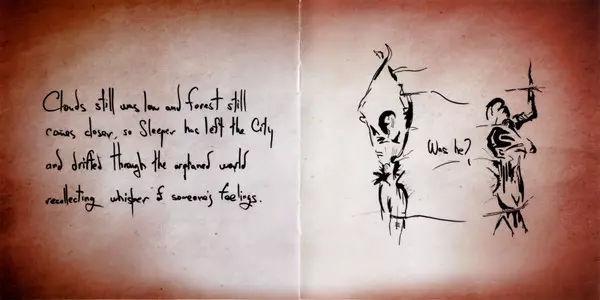 Clouds still was low and forest still
comes closer, so Sleeper has left the City
and drifted through the orphaned world
recollecting whisper of someone's feelings.
Was he?